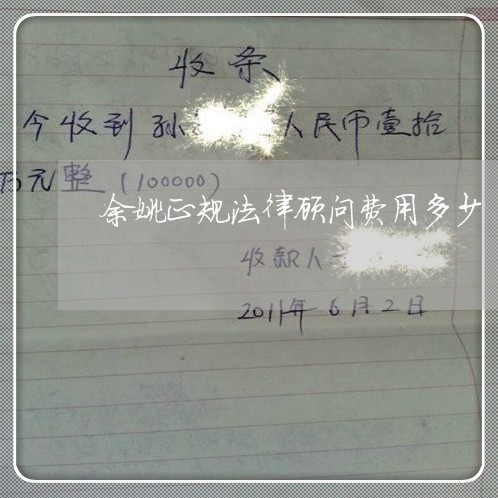 收条
今收到孙 人民币壹拾
万元整(100000)
余姚正规法律顾问费用多少
收款人
2011年6月2日